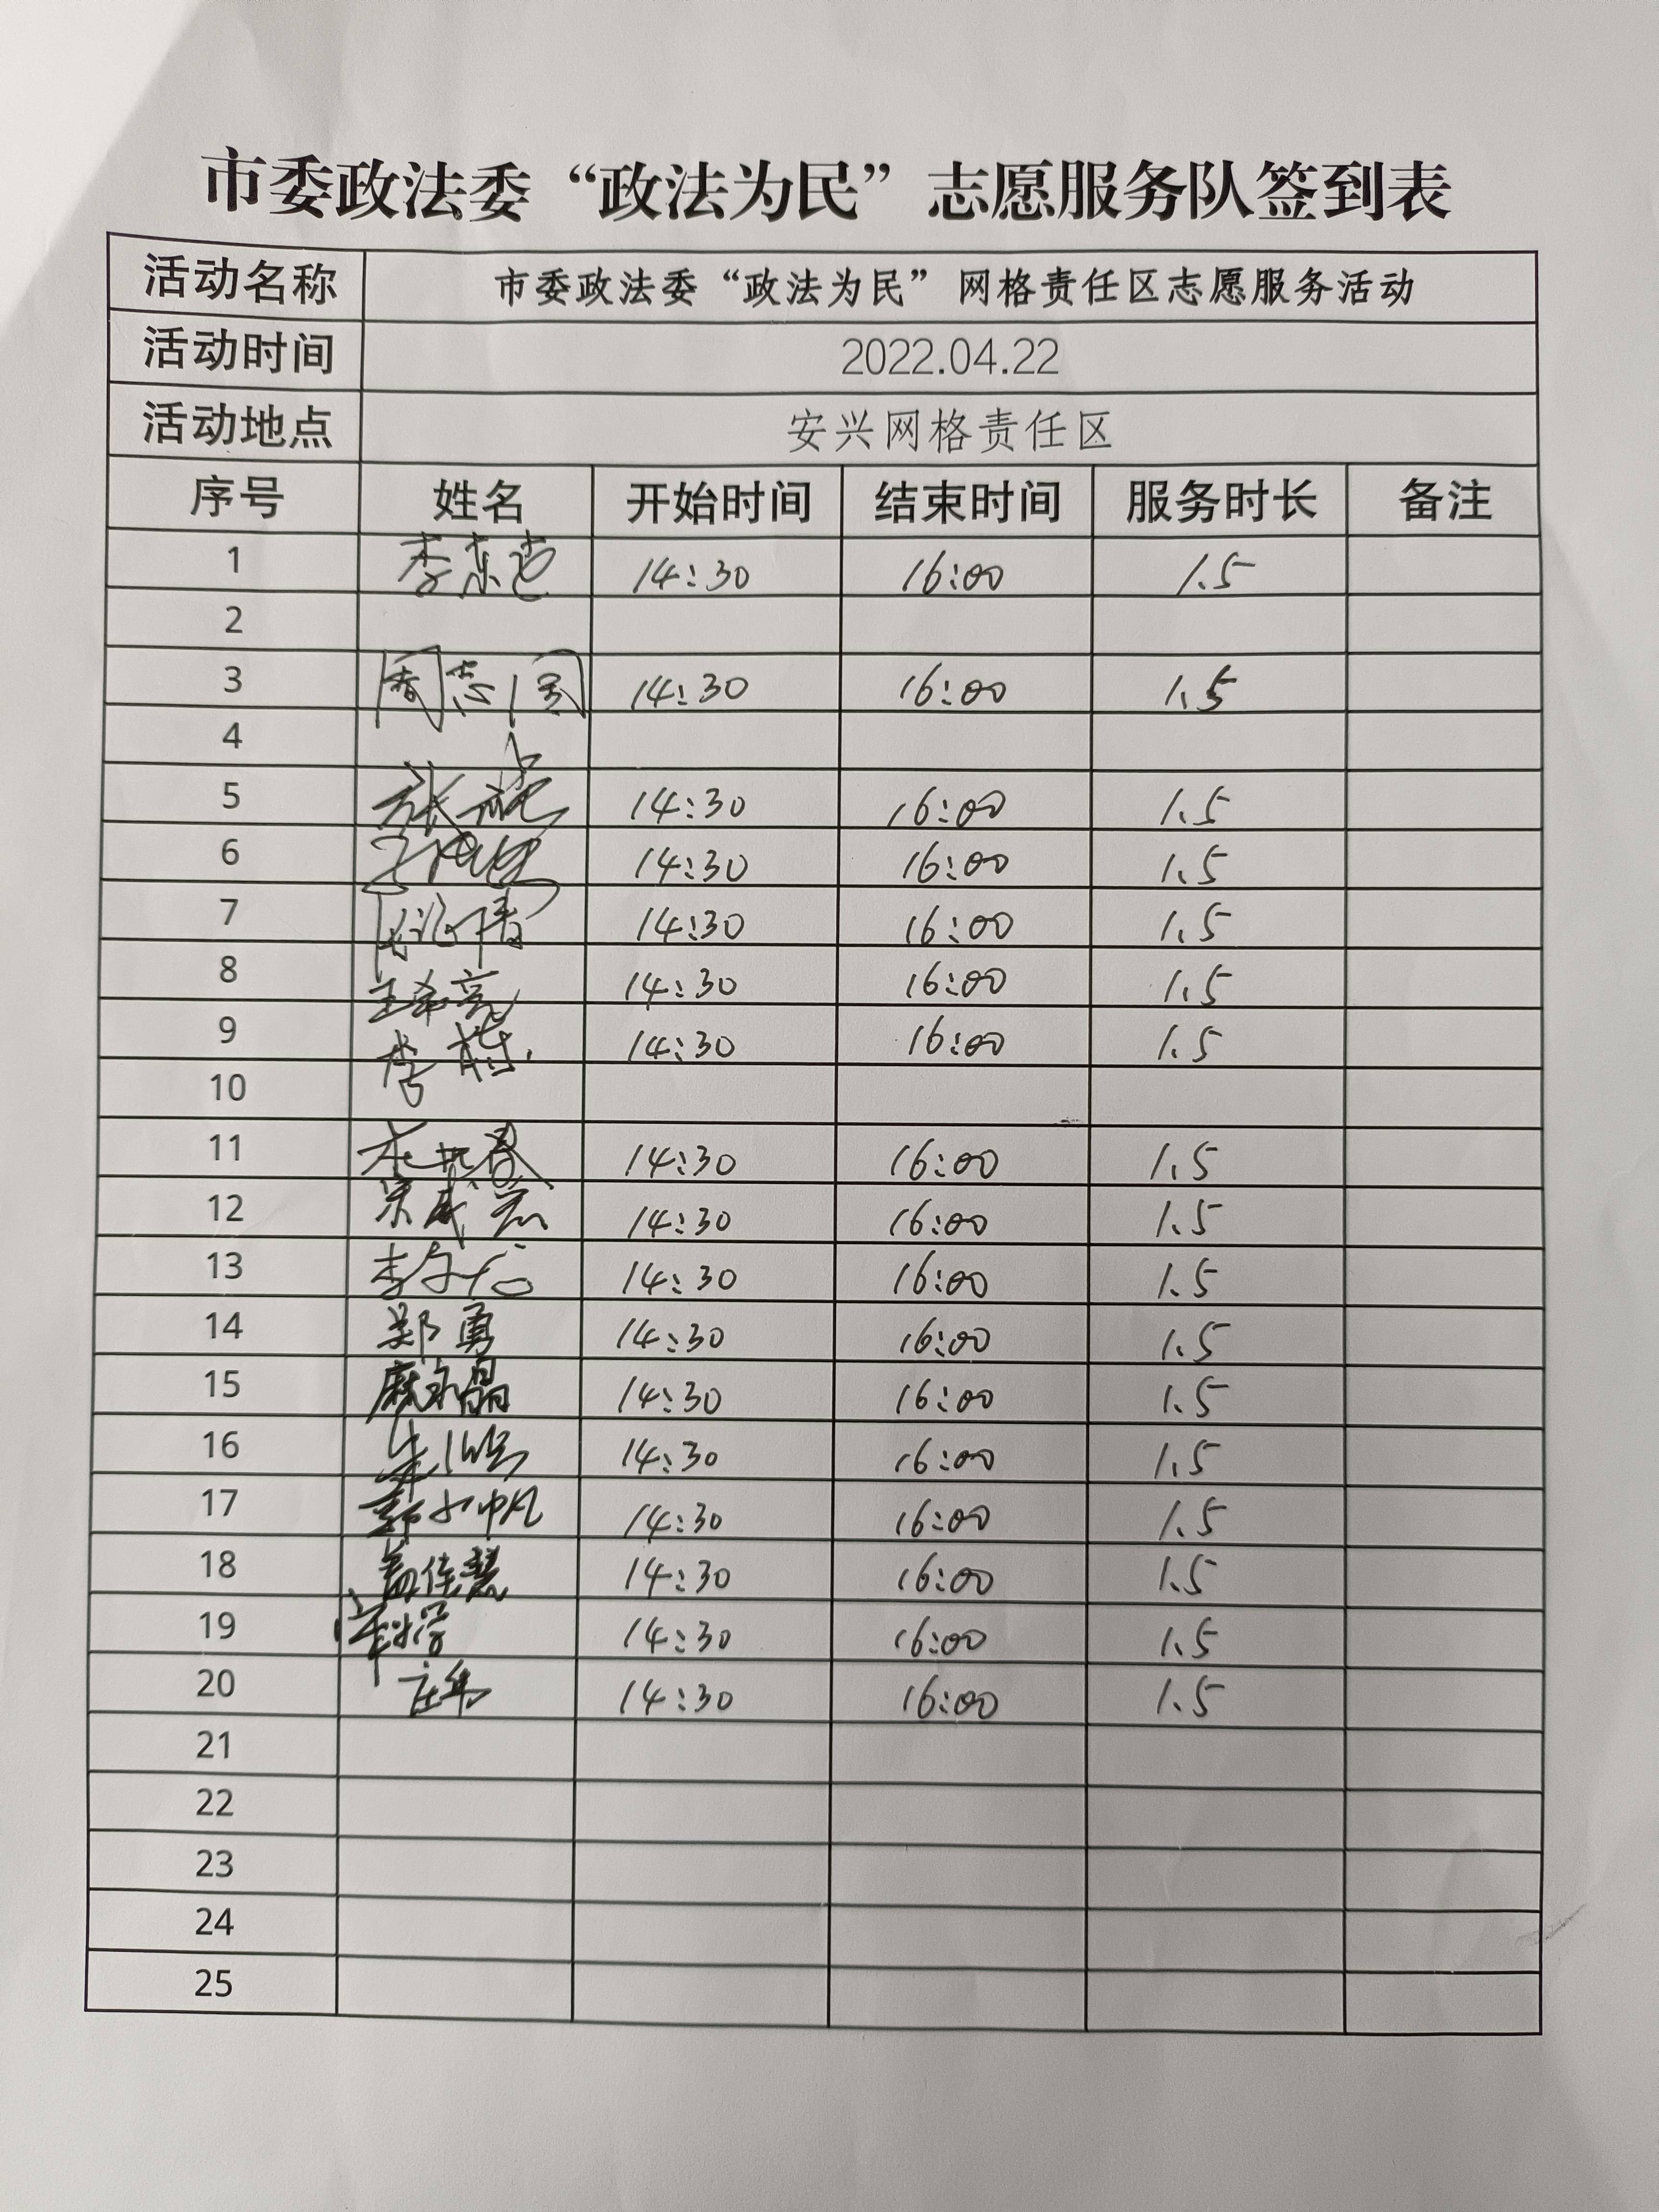 市委政法委“政法为民”志愿服务队签到表
活动名称 市委政法委“政法为民”网格责任区志愿服务活动
活动时间 2022.04.22
活动地点 安兴网格责任区
序号 姓名 开始时间 结束时间 服务时长 备注
1 14:30 16:00 1.5
2
3 周志国 14:30 16:00 1.5
4
5 14:30 16:00 1.5
6 14:30 16:00 1.5
7 14:30 16:00 1.5
8 14:30 16:00 1.5
9 14:30 16:00 1.5
10
11 14:30 16:00 1.5
12 14:30 16:00 1.5
13 14:30 16:00 1.5
14 郑勇 14:30 16:00 1.5
15 14:30 16:00 1.5
16 14:30 16:00 1.5
17 14:30 16:00 1.5
18 14:30 16:00 1.5
19 14:30 16:00 1.5
20 14:30 16:00 1.5
21
22
23
24
25